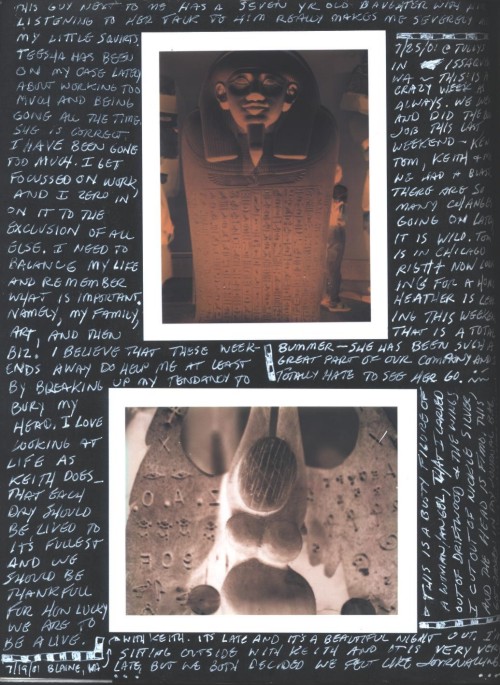 THIS GUY NEXT TO ME HAS A SEVEN YR OLD DAUGHTER WITH
LISTENING TO HER TALK TO HIM REALLY MAKES ME SEVERELY
MY LITTLE SQUIRTS.
TEESHA HAS BEEN
ON MY CASE LATELY
ABOUT WORKING TOO
MUCH AND BEING
GOING ALL THE TIME.
SHE IS CORRECT
I HAVE BEEN GONE
TOO MUCH. I GET
FOCUSSED ON WORK
AND I ZERO IN
ON IT TO THE
EXCLUSION OF ALL
ELSE. I NEED TO
BALANCE MY LIFE
AND REMEMBER
WHAT IS IMPORTANT.
NAMELY, MY FAMILY,
ART, AND THEN
BIZ. I BELIEVE THAT THESE WEEK-
ENDS AWAY DO HELP ME AT LEAST
BY BREAKING UP MY TENDANCY TO
BURY MY
HEAD. I LOVE
LOOKING AT
LIFE AS
KEITH DOES_
THAT EACH
DAY SHOULD
BE LIVED TO
ITS FULLEST
AND WE
SHOULD BE
THANKFULL
FOR HOW LUCKY
WE ARE TO
BE A LIVE.
7/19/01 BLAINE, WA
7/25/01 @ TULLY
IN ISSAQUAH
WA ~ THIS IS A
CRAZY WEEK AS
ALWAYS. WE
AND DID THE
JOB THIS LAST
WEEKEND -
TOM, KEITH +
WE HAD A BLAST
THERE ARE SO
MANY CHANGES
GOING ON LATE
IT IS WILD. TOM
IS IN CHICAGO
RIGHT NOW
ING FOR A
HEATHER IS LEAV
ING THIS WEEK
THAT IS A TOTAL
BUMMER - SHE HAS BEEN SUCH A
GREAT PART OF OUR COMPANY AND
TOTALLY HATE TO SEE HER GO.
THIS IS A BOOTY PICTURE OF
A WOMAN/ANGEL THAT I CARVED
OUT OF DRIFTWOOD & THE WINGS
I CUT OUT OF NICKLE SILVER
AND THE HEAD IS FIMO. THIS
WITH KEITH. ITS LATE AND IT'S A BEAUTIFUL NIGHT OUT. I
SITTING OUTSIDE WITH KEITH AND IT IS VERY VERY
LATE, BUT WE BOTH DECIDED WE FELT LIKE JOURNALLING